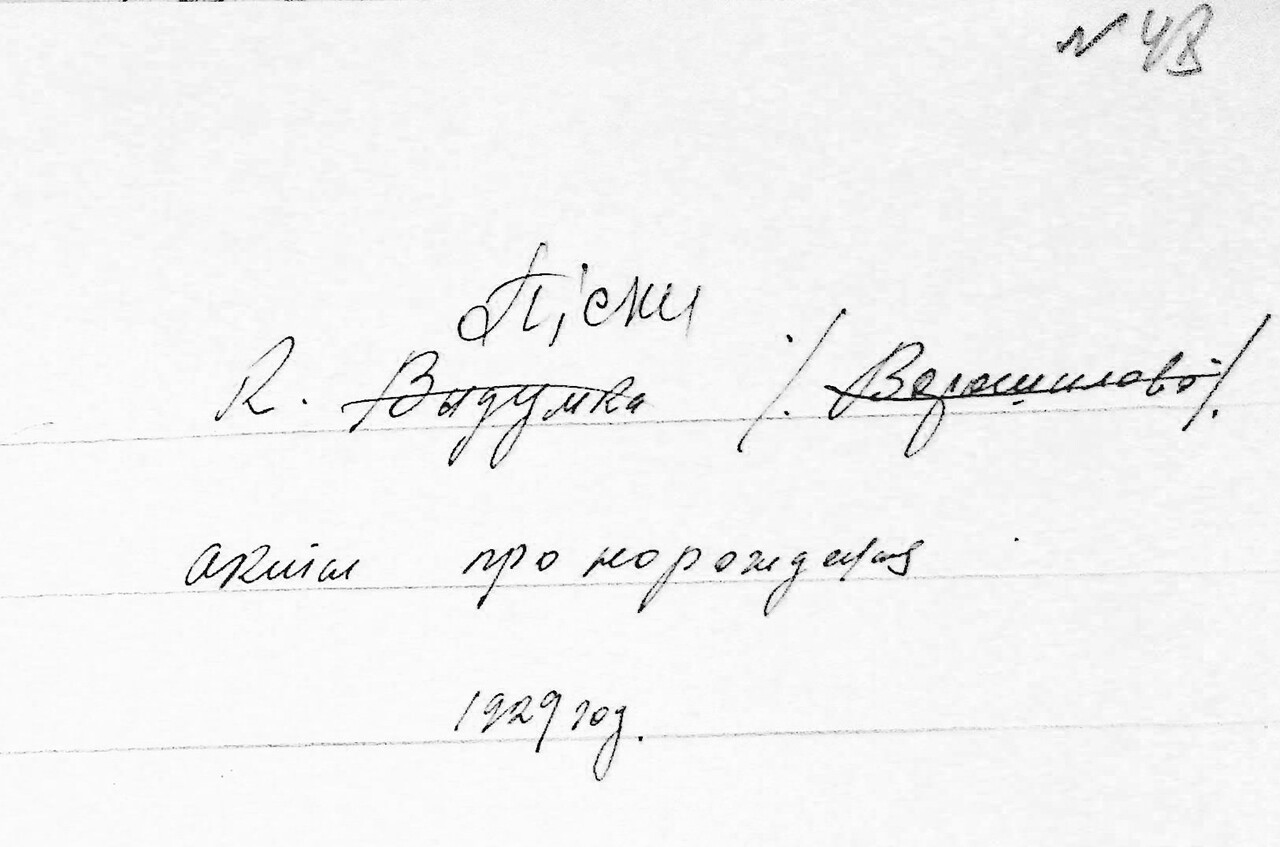 № 48
Піски
К. Видумка /. Ворошилово /.
акти про народження
1929 год.